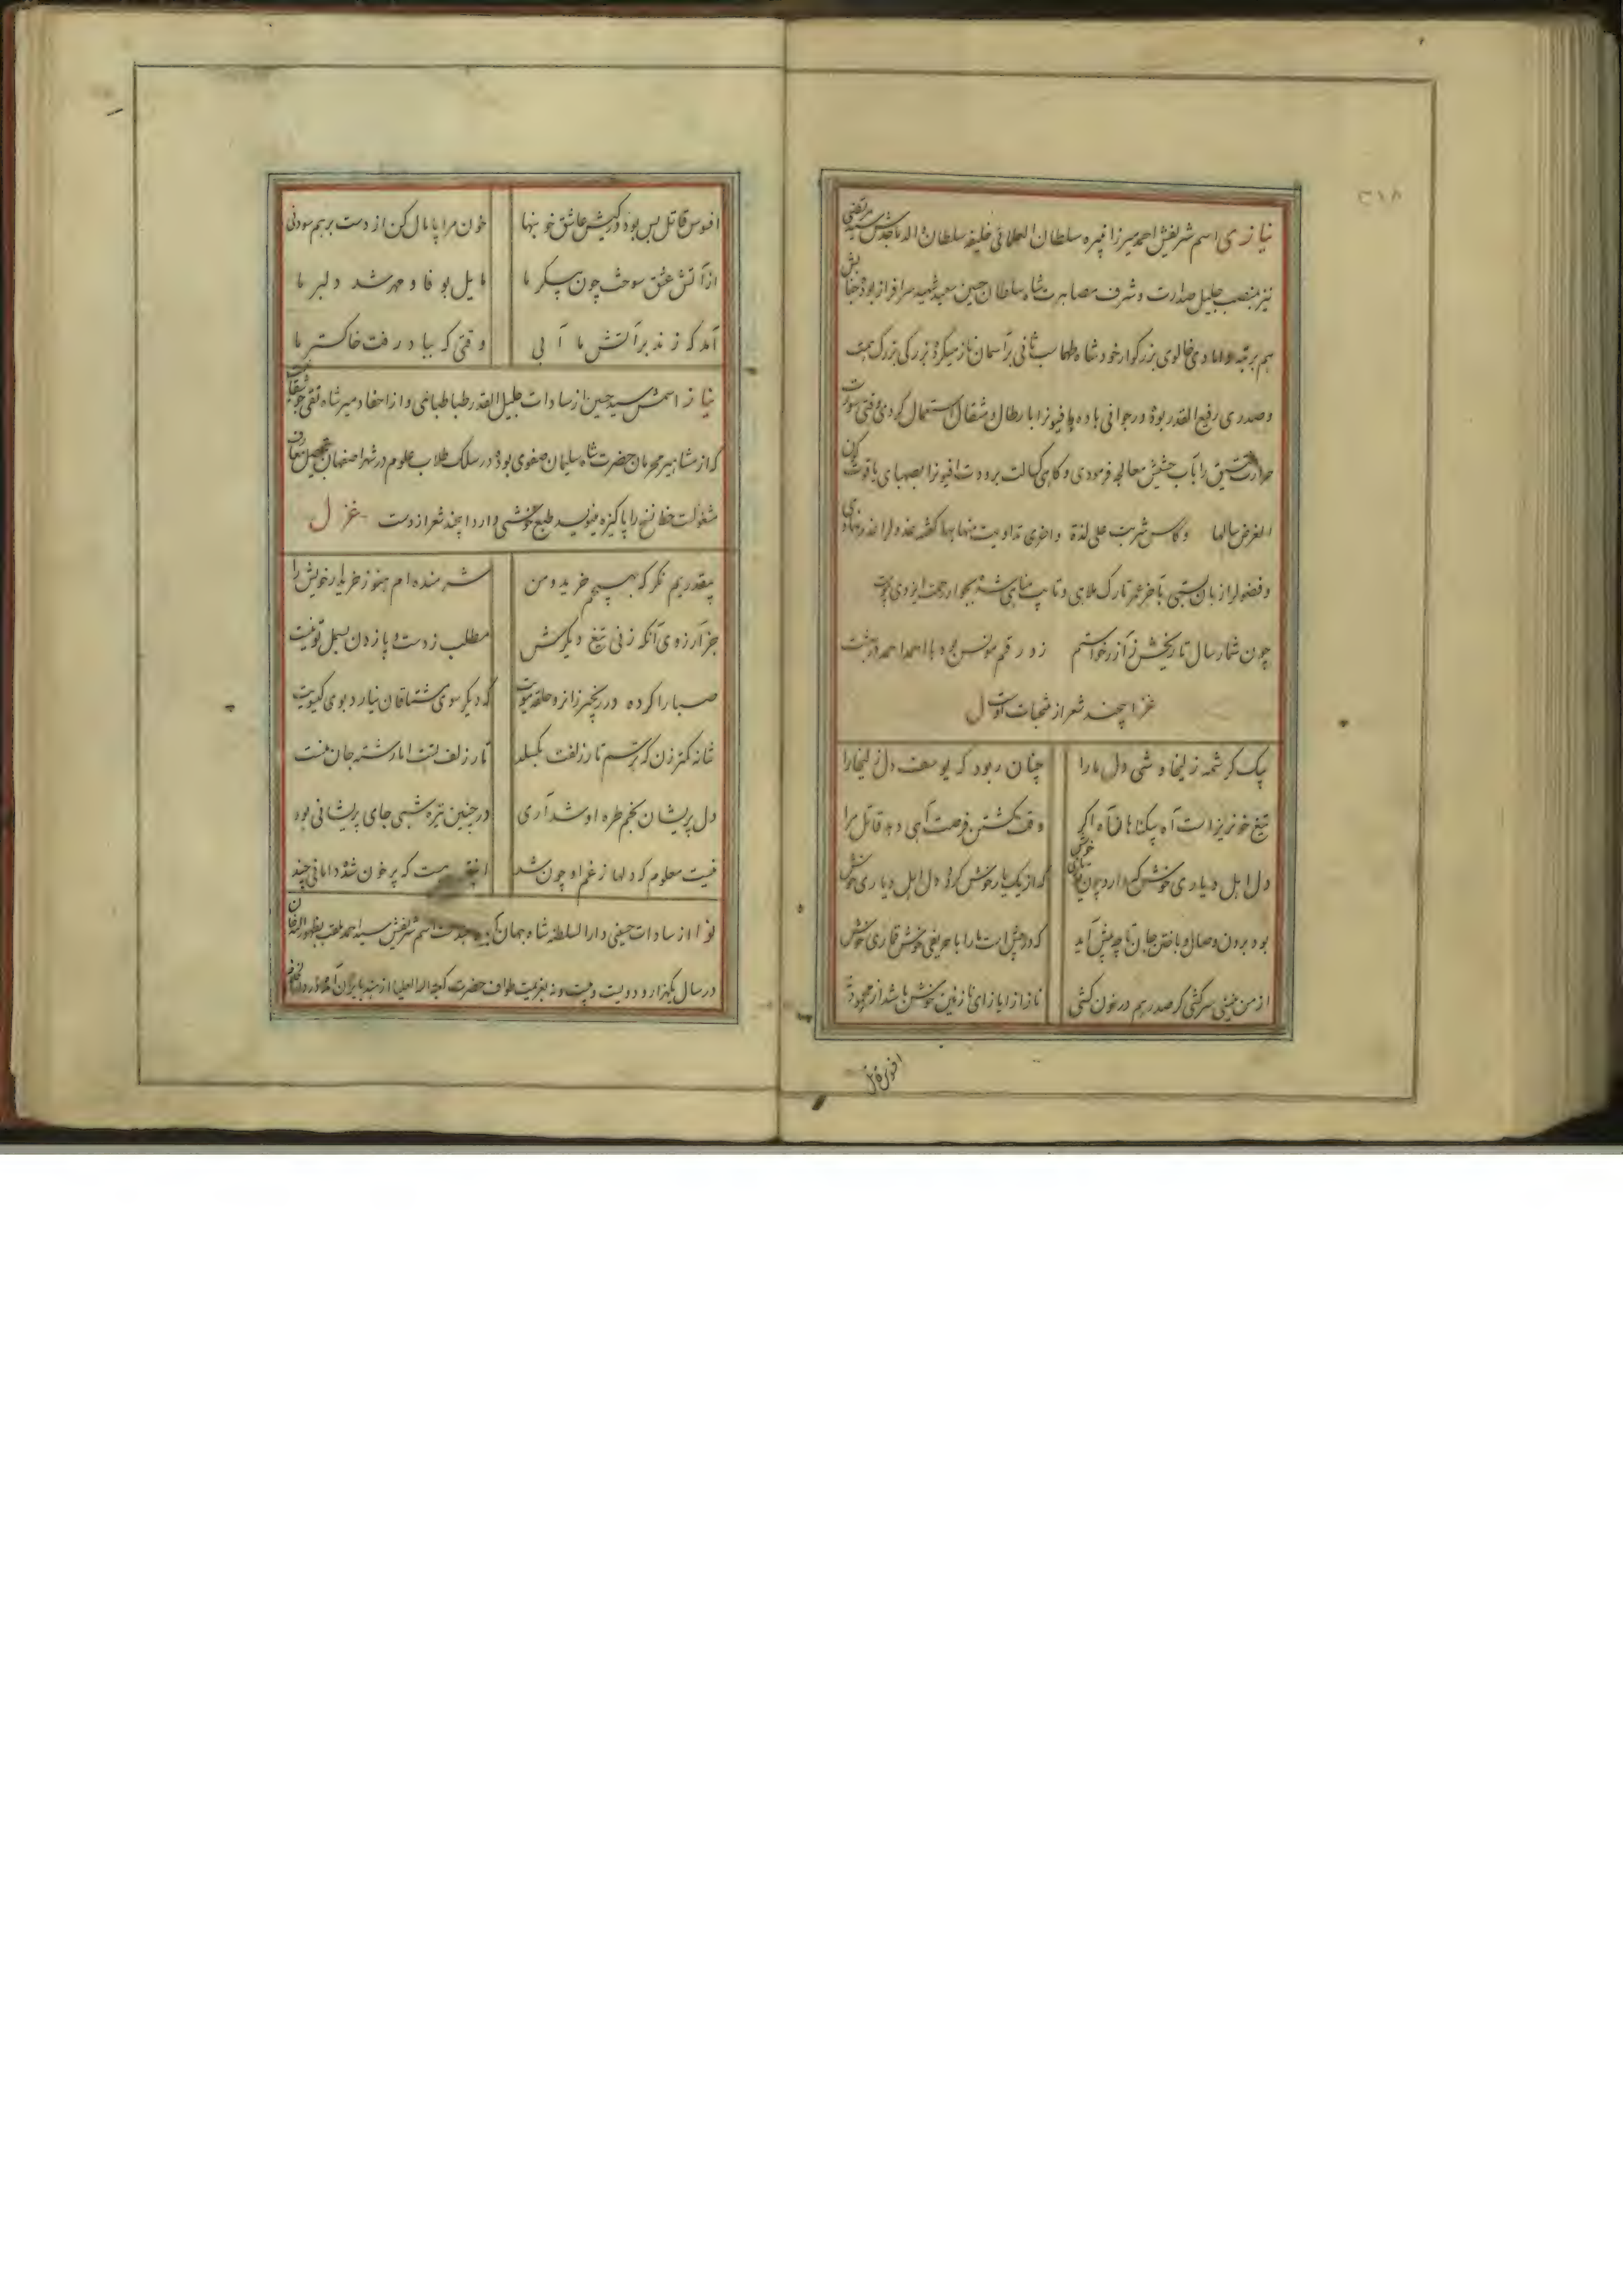 نیازی اسم شریفش احمد میرزا نبیره سلطان العلمائی خلیفه سلطان والد ماجدش سید مرتضی
نیز بمنصب جلیل صدارت و شرف مصاهرت شاه سلطان حسین سعید شهید سرافراز بوده جنابش
هم برتبه دامادی خالوی بزرگوار خود شاه طهماسب ثانی بر آسمان ناز میکرده بزرگی بزرگ همت
و صدری رفیع القدر بوده در جوانی باده با فیونرا با رطال و مثقال استعمال کردی وقتی سورت
حرارت را بآب حشیش معالجه فرمودی و گاهی کسالت برودت افیونرا بصهبای یاقوت
الغرض سالها و کاس شربت علی لذة و اخری تداویت منها بها گفته
و فضولرا زبان بستی تا آخر عمر تارک ملاهی و تایب مناهی شده بجوار رحمت ایزدی پیوست
چون شمار سال تاریخش ز آزر خواستم زد رقم مونس بود با احمدا احمد در بهشت
این چند شعر از منتخبات اوست غزل
یک کرشمه زلیخا وشی دل ما را
چنان ربود که یوسف دل زلیخا را
تیغ خونریز است آه بیگناهان آه اگر
وقت کشتن فرصت آهی دهد قاتل مرا
دل اهل دیاری خوش که دارد چون تو یاری خوش
که از یک یار خوش گردد دل اهل دیاری خوش
بود بردن وصال و باختن جان تا چه پیش آید
که در پیش است ما را با حریفی خوش قماری خوش
از من حسنی سرکشی گر صد رهم در خون کشی
ناز از ایاز ای نازنین خوش باشد از محمود نه
افسوس قاتل
افسوس قاتل بس بود در کیش عاشق خونبها
خون مرا پامال کن از دست بر هم سودنی
از آتش عشق سوخت چون پیکر ما
مایل بوفا و مهر شد دلبر ما
آمد که زند بر آتش ما آبی
وقتی که بباد رفت خاکستر ما
نیاز اسمش سید حسین از سادات جلیل القدر طباطبائی و از احفاد میر شاه تقی
که از مشاهیر محرمان حضرت شاه سلیمان صفوی بوده در سلک طلاب علوم در شهر اصفهان بتحصیل معارف
مشغولست خط نسخ را پاکیزه مینویسد طبع خوشی دارد این چند شعر از وست غزل
بیقدریم نگر که بهیچم خرید و من
شرمنده ام هنوز خریدار خویش را
جز آرزوی آنکه زنی تیغ دیگرش
مطلب ز دست و پا زدن بسمل تو نیست
صبا را کرده در زنجیر زانرو حلقه مویت
که دیگر سوی مشتاقان نیارد بوی گیسویت
شانه کمتر زن که ترسم تار زلفت بگسلد
تار زلف تست اما رشته جان منست
دل پریشان بخم طره او شد آری
در چنین تیره شبی جای پریشانی بود
نیست معلوم که دلها ز غم او چون شد
هست که پر خون شده دامانی چند
نوا از سادات حسینی دار السلطنه شاه جهان آباد است اسم شریفش سید احمد
در سال یکهزار و دویست و بیست و نه بعزیمت طواف حضرت کعبه